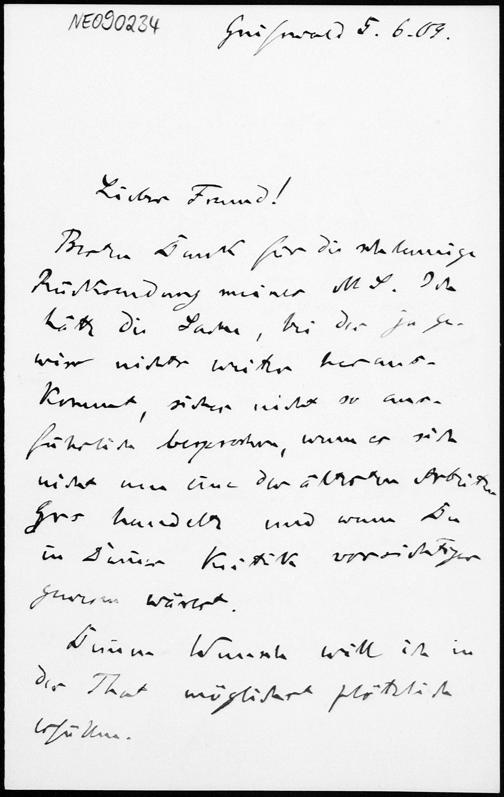 NE090234
Greifswald 5. 6. 09.
Lieber Freund!
Besten Dank für die schleunige
Rücksendung meines MS. Ich
hätte die Sache, bei der ja ge-
wiss nichts weiter heraus-
kommt, sicher nicht so aus-
führlich besprochen, wenn es sich
nicht um eine der ältesten Arbeiten
handelte und wenn Du
in Deiner Kritik vorsichtiger
gewesen wärest.
Deinen Wunsch will ich in
der That möglichst plötzlich
erfüllen.